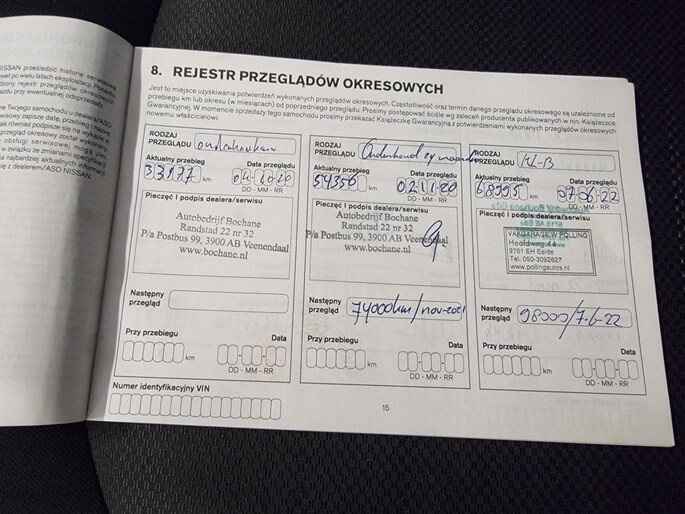 NISSAN prześledzić historię serwisową
nawet po wielu latach eksploatacji. Ponadto
rejestr przeglądów okresowych
przy ewentualnej odsprzedaży.
Twojego samochodu u dealera/ASO
serwisowy zapisze datę, przebieg i nazwę
jak również podpisze się na wykazie w
przegląd okresowy został wykonany
obsługi serwisowej mogą ulec
w związku ze zmianami specyfikacji
najbardziej aktualnych informacji
się z dealerem/ASO NISSAN.
8. REJESTR PRZEGLĄDÓW OKRESOWYCH
Jest to miejsce uzyskiwania potwierdzeń wykonanych przeglądów okresowych. Częstotliwość oraz termin danego przeglądu okresowego są uzależnione od
przebiegu km lub okresu (w miesiącach) od poprzedniego przeglądu. Prosimy postępować ściśle wg zaleceń producenta publikowanych w nin. Książeczce
Gwarancyjnej. W momencie sprzedaży tego samochodu prosimy przekazać Książeczkę Gwarancyjną z potwierdzeniami wykonanych przeglądów okresowych
nowemu właścicielowi.
RODZAJ
PRZEGLĄDU
Aktualny przebieg Data przeglądu
33177 km
DD - MM - RR
Pieczęć i podpis dealera/serwisu
Autobedrijf Bochane
Randstad 22 nr 32
P/a Postbus 99, 3900 AB Veenendaal
www.bochane.nl
Następny
przegląd
Przy przebiegu Data
km
DD - MM - RR
Numer identyfikacyjny VIN
RODZAJ
PRZEGLĄDU Onderhoud 24 maanden
Aktualny przebieg Data przeglądu
54356 km 02-11-20
DD - MM - RR
Pieczęć i podpis dealera/serwisu
Autobedrijf Bochane
Randstad 22 nr 32
P/a Postbus 99, 3900 AB Veenendaal
www.bochane.nl
Następny
przegląd 74000km/nov-2021
Przy przebiegu Data
km
DD - MM - RR
RODZAJ
PRZEGLĄDU KL-B
Aktualny przebieg Data przeglądu
68995 km 07-06-22
DD - MM - RR
Pieczęć i podpis dealera/serwisu
POLLING
Hoofdweg 44
9761 EH Eelde
Tel. 050-3092627
www.pollingsautos.nl
Następny
przegląd 98000/7-6-22
Przy przebiegu Data
km
DD - MM - RR
15